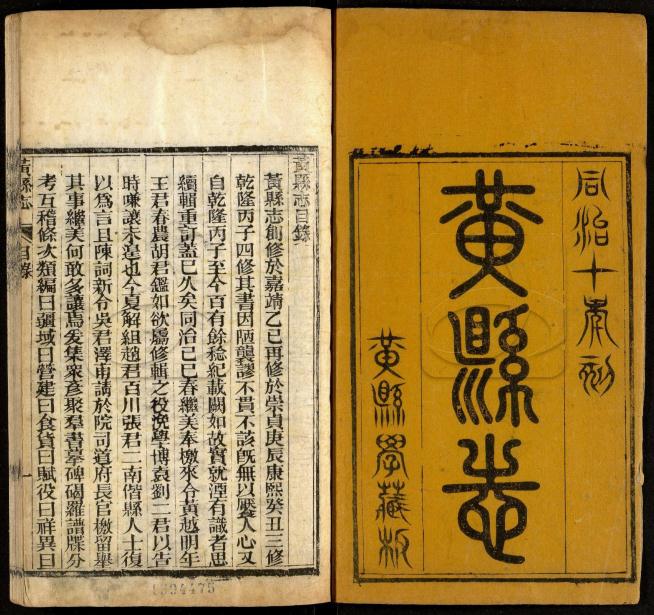 同治十年刻
黃縣志
黃縣學藏板
黃縣志目錄
黃縣志創修於嘉靖乙巳再修於崇貞庚辰康熙癸丑三修
乾隆丙子四修其書因陋襲謬不貫不該旣無以厭人心又
自乾隆丙子至今百有餘稔紀載闕如故實就湮有識者思
續輯重訂蓋已久矣同治己巳春繼美奉檄來令黃越明年
王君春農胡君鑑如欲屬修輯之役浼學博袁劉二君以告
時嗛讓未遑也今夏解組趙君百川張君二南偕縣人士復
以爲言且陳詞新令吳君澤甫請於院司道府長官檄留舉
其事繼美何敢多讓焉爰集衆彥聚羣書摹碑碣羅譜牒分
考互稽條次類編曰疆域曰營建曰食貨曰賦役曰祥異曰
黃縣志 目錄 一
0394475